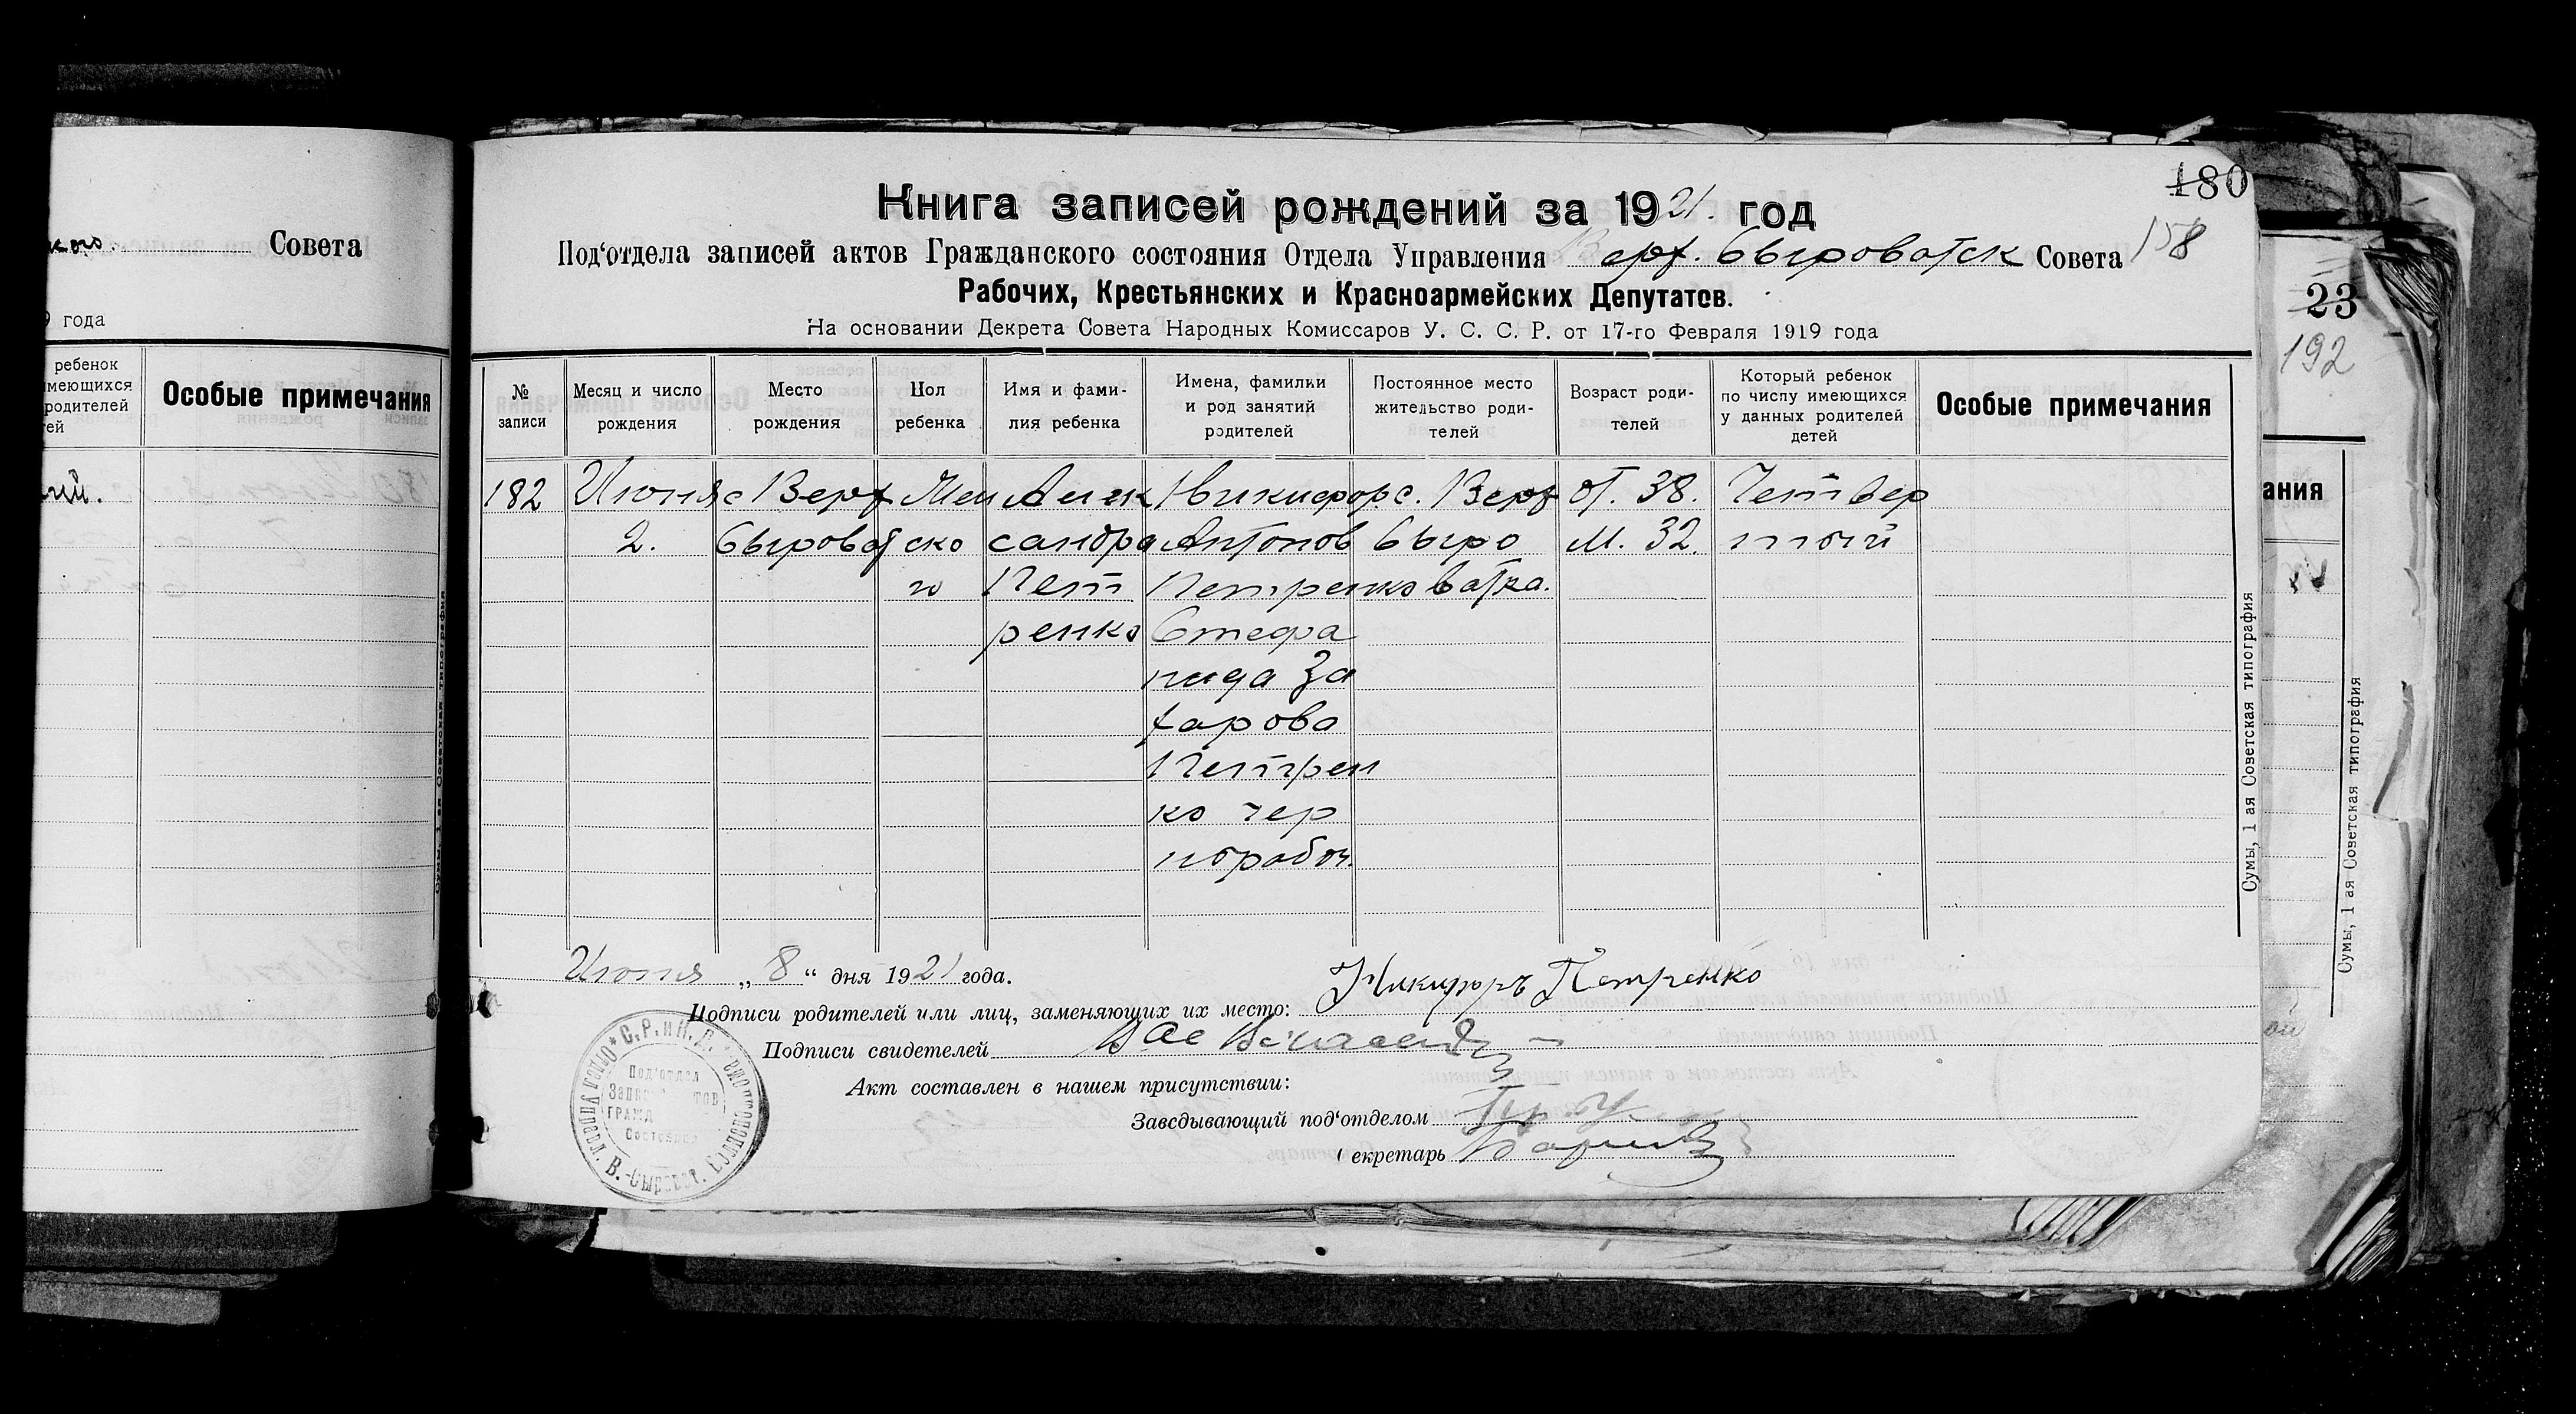 Совета
года
ребенок
имеющихся
родителей
тей
Особые примечания
180
Книга записей рождений за 1921. год
158
Под‘отдела записей актов Гражданского состояния Отдела Управления Верх. Сыроватск Совета
Рабочих, Крестьянских и Красноармейских Депутатов.
На основании Декрета Совета Народных Комиссаров У. С. С. Р. от 17-го Февраля 1919 года
№ записи
Месяц и число рождения
Место рождения
Пол ребенка
Имя и фами-
лия ребенка
Имена, фамилки
и род занятий
родителей
Постоянное место
жительство роди-
телей
Возраст роди-
телей
Который ребенок
по числу имеющихся
у данных родителей
детей
Особые примечания
182 Июня с Верх Жен Алек Никифор с. Верх от. 38. Четвер
2. Сыроват ско сандра Антонов Сыро М. 32. тый
го Пет Петренко ватка.
ренко Стефа
нида За
харова
Петрен
ко чер
норабоч.
Июня „8“ дня 1921 года.
Подписи родителей или лиц, заменяющих их место: Никифоръ Петренко
Подписи свидетелей
Акт составлен в нашем присутствии:
Заведывающий под‘отделом
екретарь
С. Р. и К. Д.
Отдел Управл. В.-Сыроват.
Под‘отдел
Состояния
Сумы, 1 ая Советская типография
23
192
ания
Сумы, 1 ая Советская типография